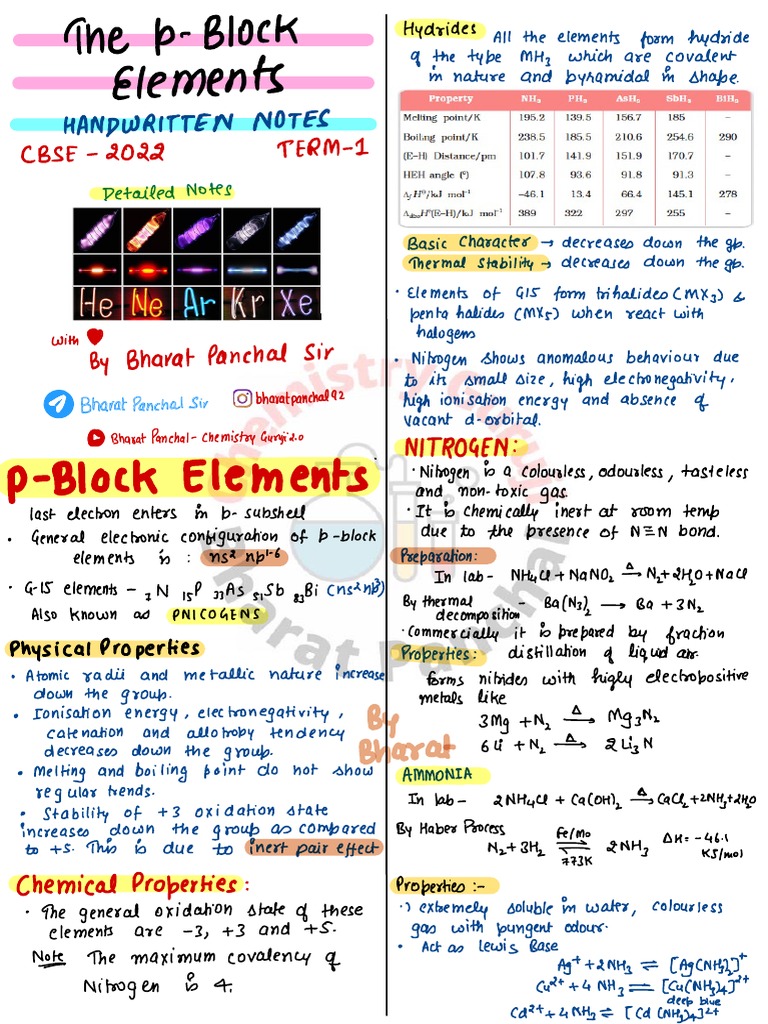 The p-Block
Elements
HANDWRITTEN NOTES
CBSE - 2022 TERM-1
Detailed Notes
He Ne Ar Kr Xe
with ❤
By Bharat Panchal Sir
Bharat Panchal Sir bharatpanchal92
Bharat Panchal - Chemistry Guruji 2.0
p-Block Elements
last electron enters in p-subshell
• General electronic configuration of p-block
elements is : ns² np¹⁻⁶
• G-15 elements - ₇N ₁₅P ₃₃As ₅₁Sb ₈₃Bi (ns²np³)
Also known as PNICOGENS
Physical Properties
• Atomic radii and metallic nature increase
down the group.
• Ionisation energy, electronegativity,
catenation and allotropy tendency
decreases down the group.
• Melting and boiling point do not show
regular trends.
• Stability of +3 oxidation state
increases down the group as compared
to +5. This is due to inert pair effect
Chemical Properties:
• The general oxidation state of these
elements are -3, +3 and +5.
Note The maximum covalency of
Nitrogen is 4.
Hydrides All the elements form hydride
of the type MH₃ which are covalent
in nature and pyramidal in shape.
Property NH₃ PH₃ AsH₃ SbH₃ BiH₃
Melting point/K 195.2 139.5 156.7 185 –
Boiling point/K 238.5 185.5 210.6 254.6 290
(E–H) Distance/pm 101.7 141.9 151.9 170.7 –
HEH angle (°) 107.8 93.6 91.8 91.3 –
ΔfH°/kJ mol⁻¹ –46.1 13.4 66.4 145.1 278
ΔdissH°(E–H)/kJ mol⁻¹ 389 322 297 255 –
Basic Character → decreases down the gp.
Thermal Stability → decreases down the gp.
• Elements of G15 form trihalides (MX₃) &
penta halides (MX₅) when react with
halogens
• Nitrogen shows anomalous behaviour due
to its small size, high electronegativity,
high ionisation energy and absence of
vacant d-orbital.
NITROGEN:
• Nitrogen is a colourless, odourless, tasteless
and non-toxic gas.
• It is chemically inert at room temp
due to the presence of N≡N bond.
Preparation:
In lab - NH₄Cl + NaNO₂ →Δ N₂+2H₂O+NaCl
By thermal
decomposition - Ba(N₃)₂ → Ba + 3N₂
• Commercially it is prepared by fraction
distillation of liquid air.
Properties:
forms nitrides with highly electropositive
metals like
3Mg + N₂ →Δ Mg₃N₂
6Li + N₂ →Δ 2Li₃N
AMMONIA
In lab - 2NH₄Cl + Ca(OH)₂ →Δ CaCl₂+2NH₃+2H₂O
By Haber Process
N₂+3H₂ ⇌ Fe/Mo 773K 2NH₃ ΔH = -46.1 KJ/mol
Properties :-
•) extremely soluble in water, colourless
gas with pungent odour.
• Act as Lewis Base
Ag⁺ + 2NH₃ ⇌ [Ag(NH₃)₂]⁺
Cu²⁺ + 4NH₃ ⇌ [Cu(NH₃)₄]²⁺
deep blue
Cd²⁺ + 4NH₃ ⇌ [Cd(NH₃)₄]²⁺
Chemistry Guruji
Bharat Panchal
By
Bharat